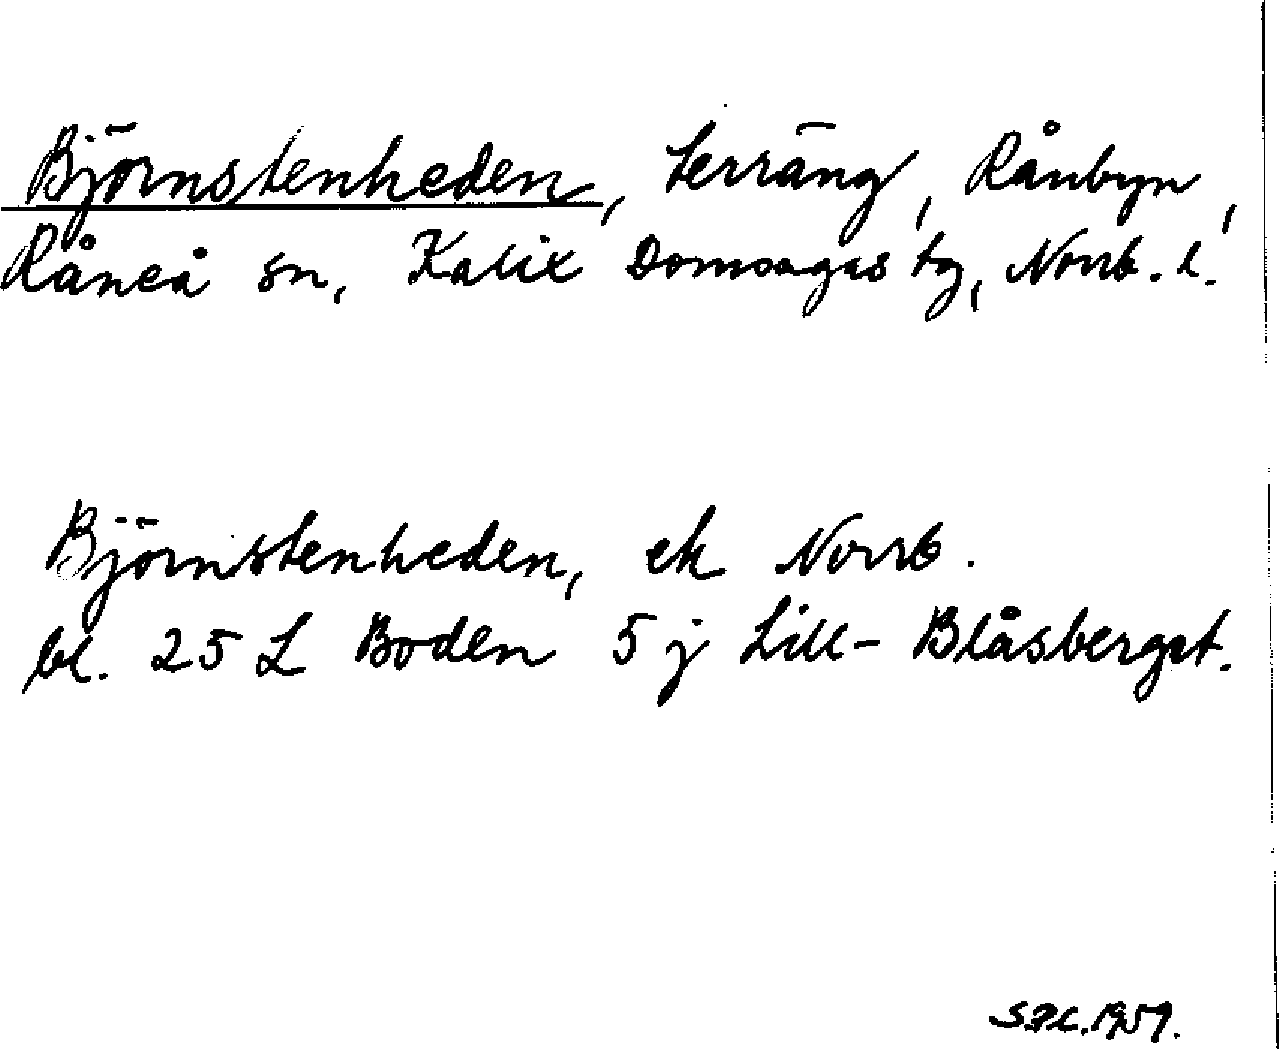 Björnstenheden, terräng, Rånbyn,
Råneå sn, Kalix Domsagas tg, Norrb. l.
Björnstenheden, ek Norrb.
bl. 25 L Boden 5 j Lill-Blåsberget.
1959.